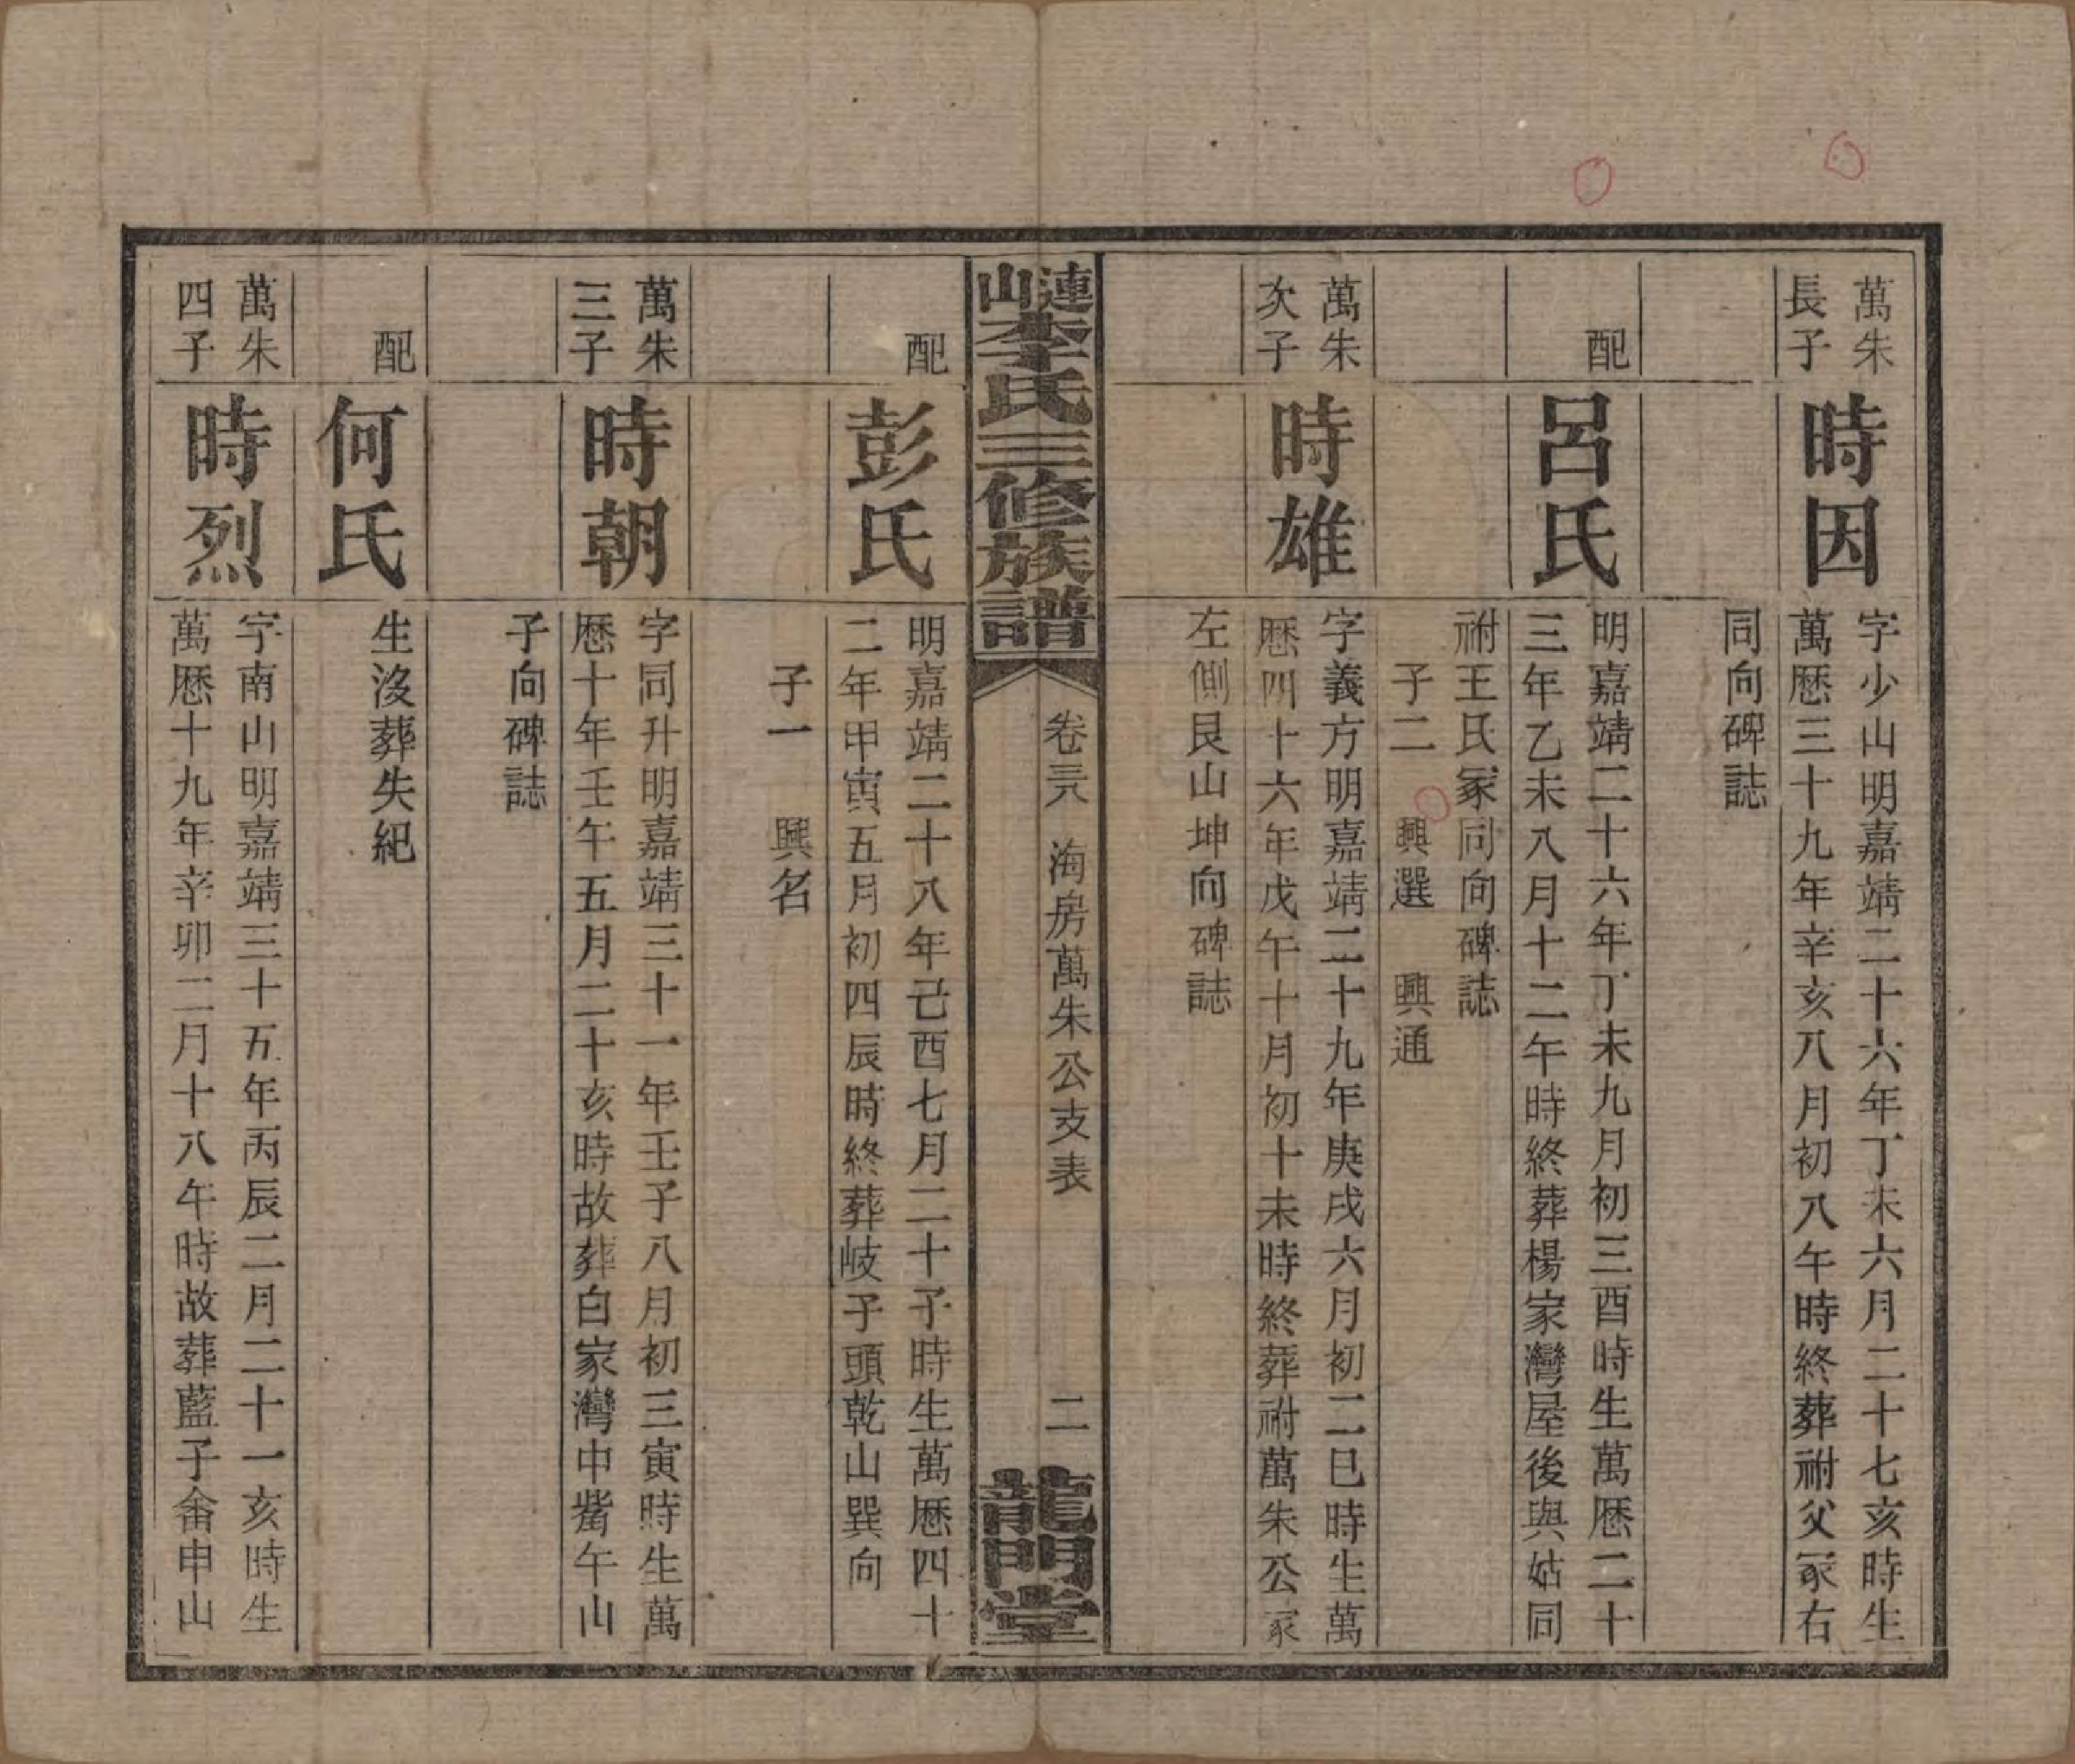 萬朱
長子
時因
字少山明嘉靖二十六年丁未六月二十七亥時生
萬曆三十九年辛亥八月初八午時終葬祔父冢右
同向碑誌
配
呂氏
明嘉靖二十六年丁未九月初三酉時生萬曆二十
三年乙未八月十二午時終葬楊家灣屋後與姑同
祔王氏冢同向碑誌
子二　興選　興通
萬朱
次子
時雄
字義方明嘉靖二十九年庚戌六月初二巳時生萬
曆四十六年戊午十月初十未時終葬祔萬朱公冢
左側艮山坤向碑誌
漣山李氏三修族譜
卷三八　海房萬朱公支表　二
龍門堂
配
彭氏
明嘉靖二十八年己酉七月二十子時生萬曆四十
二年甲寅五月初四辰時終葬岐子頭乾山巽向
子一　興名
萬朱
三子
時朝
字同升明嘉靖三十一年壬子八月初三寅時生萬
曆十年壬午五月二十亥時故葬白家灣中觜午山
子向碑誌
配
何氏
生沒葬失紀
萬朱
四子
時烈
字南山明嘉靖三十五年丙辰二月二十一亥時生
萬曆十九年辛卯二月十八午時故葬藍子畬申山